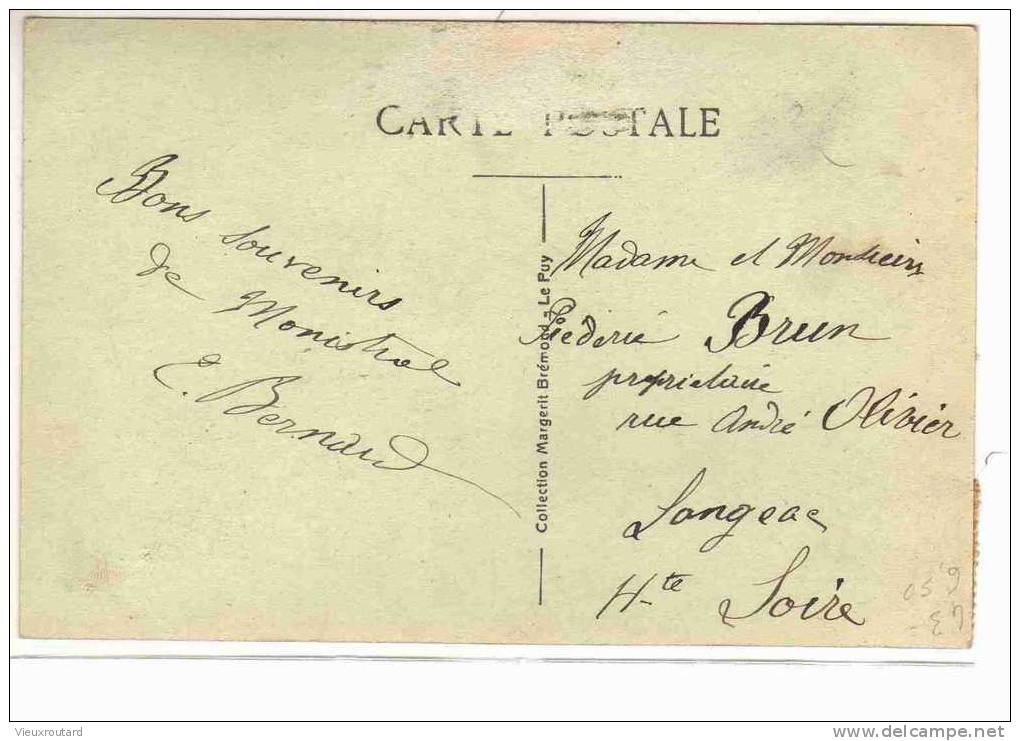 CARTE POSTALE
Bons souvenirs
de Monistrol
E. Bernard
Collection Margerit Brémond - Le Puy
Madame et Monsieur
Fréderic Brun
propriétaire
rue André Olivier
Langeac
Hte Loire
6,50
Vieuxroutard
www.delcampe.net